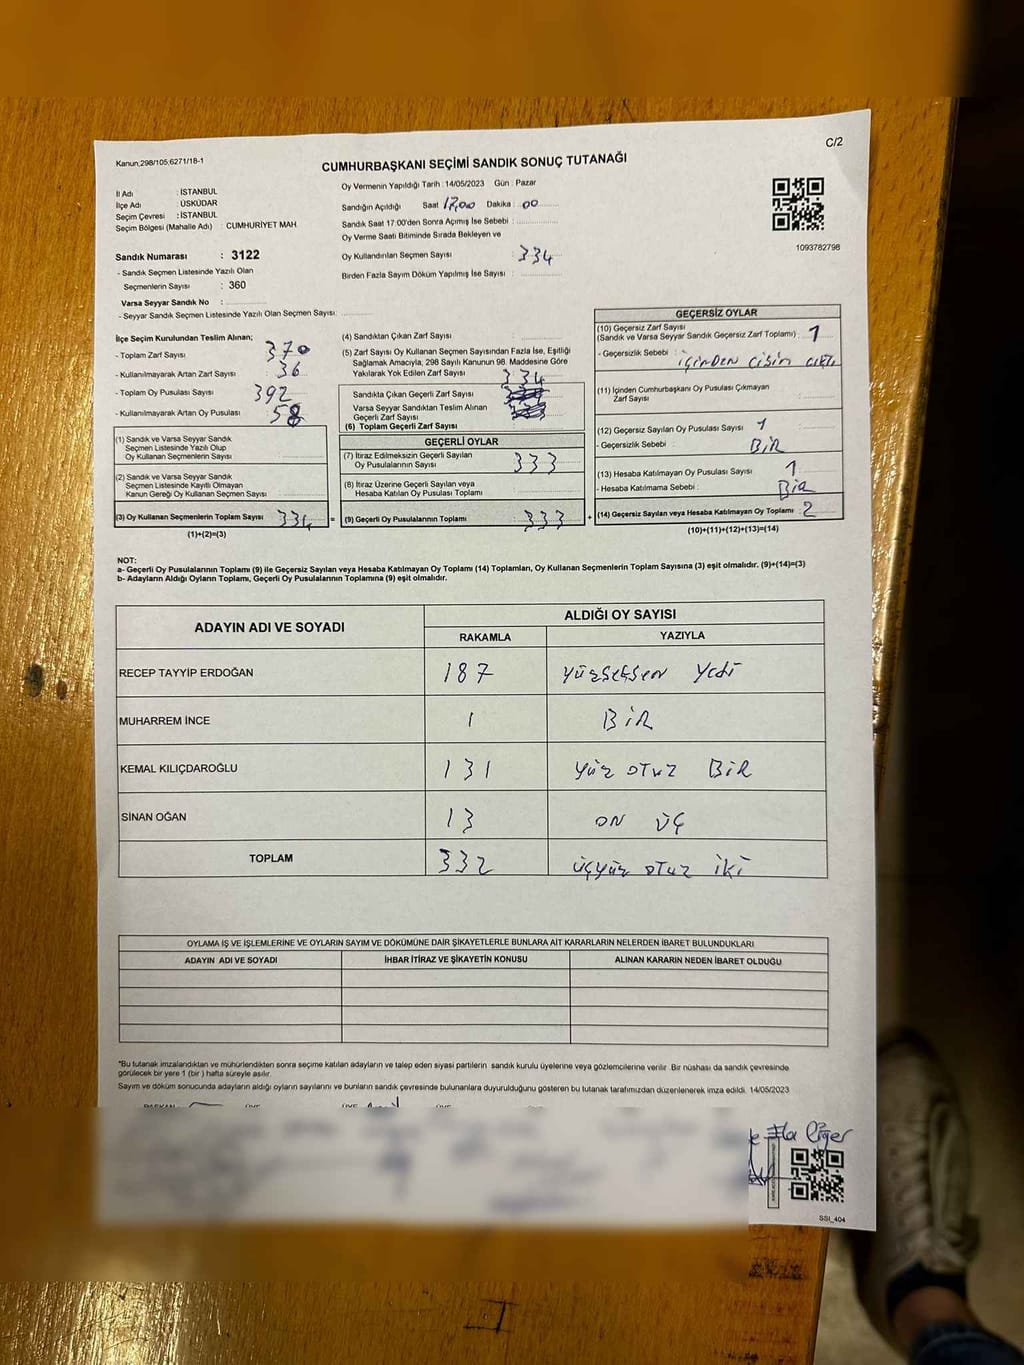 C/2
Kanun,298/105;6271/18-1
CUMHURBAŞKANI SEÇİMİ SANDIK SONUÇ TUTANAĞI
İl Adı : İSTANBUL
İlçe Adı : ÜSKÜDAR
Seçim Çevresi : İSTANBUL
Seçim Bölgesi (Mahalle Adı) : CUMHURİYET MAH
Sandık Numarası : 3122
- Sandık Seçmen Listesinde Yazılı Olan
Seçmenlerin Sayısı : 360
Varsa Seyyar Sandık No :
- Seyyar Sandık Seçmen Listesinde Yazılı Olan Seçmen Sayısı:
Oy Vermenin Yapıldığı Tarih : 14/05/2023 Gün : Pazar
Sandığın Açıldığı Saat 17,00 Dakika : 00
Sandık Saat 17:00'den Sonra Açımış İse Sebebi :
Oy Verme Saati Bitiminde Sırada Bekleyen ve
Oy Kullandırılan Seçmen Sayısı : 334
Birden Fazla Sayım Döküm Yapılmış İse Sayısı :
1093782798
İlçe Seçim Kurulundan Teslim Alınan;
- Toplam Zarf Sayısı : 370
- Kullanılmayarak Artan Zarf Sayısı : 36
- Toplam Oy Pusulası Sayısı : 392
- Kullanılmayarak Artan Oy Pusulası : 58
(1) Sandık ve Varsa Seyyar Sandık
Seçmen Listesinde Yazılı Olup
Oy Kullanan Seçmenlerin Sayısı :
(2) Sandık ve Varsa Seyyar Sandık
Seçmen Listesinde Kayıtlı Olmayan
Kanun Gereği Oy Kullanan Seçmen Sayısı :
(3) Oy Kullanan Seçmenlerin Toplam Sayısı : 334 =
(1)+(2)=(3)
(4) Sandıktan Çıkan Zarf Sayısı :
(5) Zarf Sayısı Oy Kullanan Seçmen Sayısından Fazla İse, Eşitliği
Sağlamak Amacıyla, 298 Sayılı Kanunun 98. Maddesine Göre
Yakılarak Yok Edilen Zarf Sayısı : 334
Sandıkta Çıkan Geçerli Zarf Sayısı :
Varsa Seyyar Sandıktan Teslim Alınan
Geçerli Zarf Sayısı :
(6) Toplam Geçerli Zarf Sayısı :
GEÇERLİ OYLAR
(7) İtiraz Edilmeksizin Geçerli Sayılan
Oy Pusulalarının Sayısı : 333
(8) İtiraz Üzerine Geçerli Sayılan veya
Hesaba Katılan Oy Pusulası Toplamı :
(9) Geçerli Oy Pusulalarının Toplamı : 333 +
GEÇERSİZ OYLAR
(10) Geçersiz Zarf Sayısı
(Sandık ve Varsa Seyyar Sandık Geçersiz Zarf Toplamı) : 1
- Geçersizlik Sebebi : İÇİNDEN CİSİM ÇIKTI
(11) İçinden Cumhurbaşkanı Oy Pusulası Çıkmayan
Zarf Sayısı :
(12) Geçersiz Sayılan Oy Pusulası Sayısı : 1
- Geçersizlik Sebebi : BİR
(13) Hesaba Katılmayan Oy Pusulası Sayısı : 1
- Hesaba Katılmama Sebebi : BİR
(14) Geçersiz Sayılan veya Hesaba Katılmayan Oy Toplamı : 2
(10)+(11)+(12)+(13)=(14)
NOT:
a- Geçerli Oy Pusulalarının Toplamı (9) ile Geçersiz Sayılan veya Hesaba Katılmayan Oy Toplamı (14) Toplamları, Oy Kullanan Seçmenlerin Toplam Sayısına (3) eşit olmalıdır. (9)+(14)=(3)
b- Adayların Aldığı Oyların Toplamı, Geçerli Oy Pusulalarının Toplamına (9) eşit olmalıdır.
ADAYIN ADI VE SOYADI
ALDIĞI OY SAYISI
RAKAMLA YAZIYLA
RECEP TAYYİP ERDOĞAN 187 YÜZSEKSEN YEDİ
MUHARREM İNCE 1 BİR
KEMAL KILIÇDAROĞLU 131 YÜZ OTUZ BİR
SİNAN OĞAN 13 ON ÜÇ
TOPLAM 332 ÜÇYÜZ OTUZ İKİ
OYLAMA İŞ VE İŞLEMLERİNE VE OYLARIN SAYIM VE DÖKÜMÜNE DAİR ŞİKAYETLERLE BUNLARA AİT KARARLARIN NELERDEN İBARET BULUNDUKLARI
ADAYIN ADI VE SOYADI İHBAR İTİRAZ VE ŞİKAYETİN KONUSU ALINAN KARARIN NEDEN İBARET OLDUĞU
*Bu tutanak imzalandıktan ve mühürlendikten sonra seçime katılan adayların ve talep eden siyasi partilerin sandık kurulu üyelerine veya gözlemcilerine verilir. Bir nüshası da sandık çevresinde
görülecek bir yere 1 (bir ) hafta süreyle asılır.
Sayım ve döküm sonucunda adayların aldığı oyların sayılarını ve bunların sandık çevresinde bulunanlara duyurulduğunu gösteren bu tutanak tarafımızdan düzenlenerek imza edildi. 14/05/2023
SSI_404